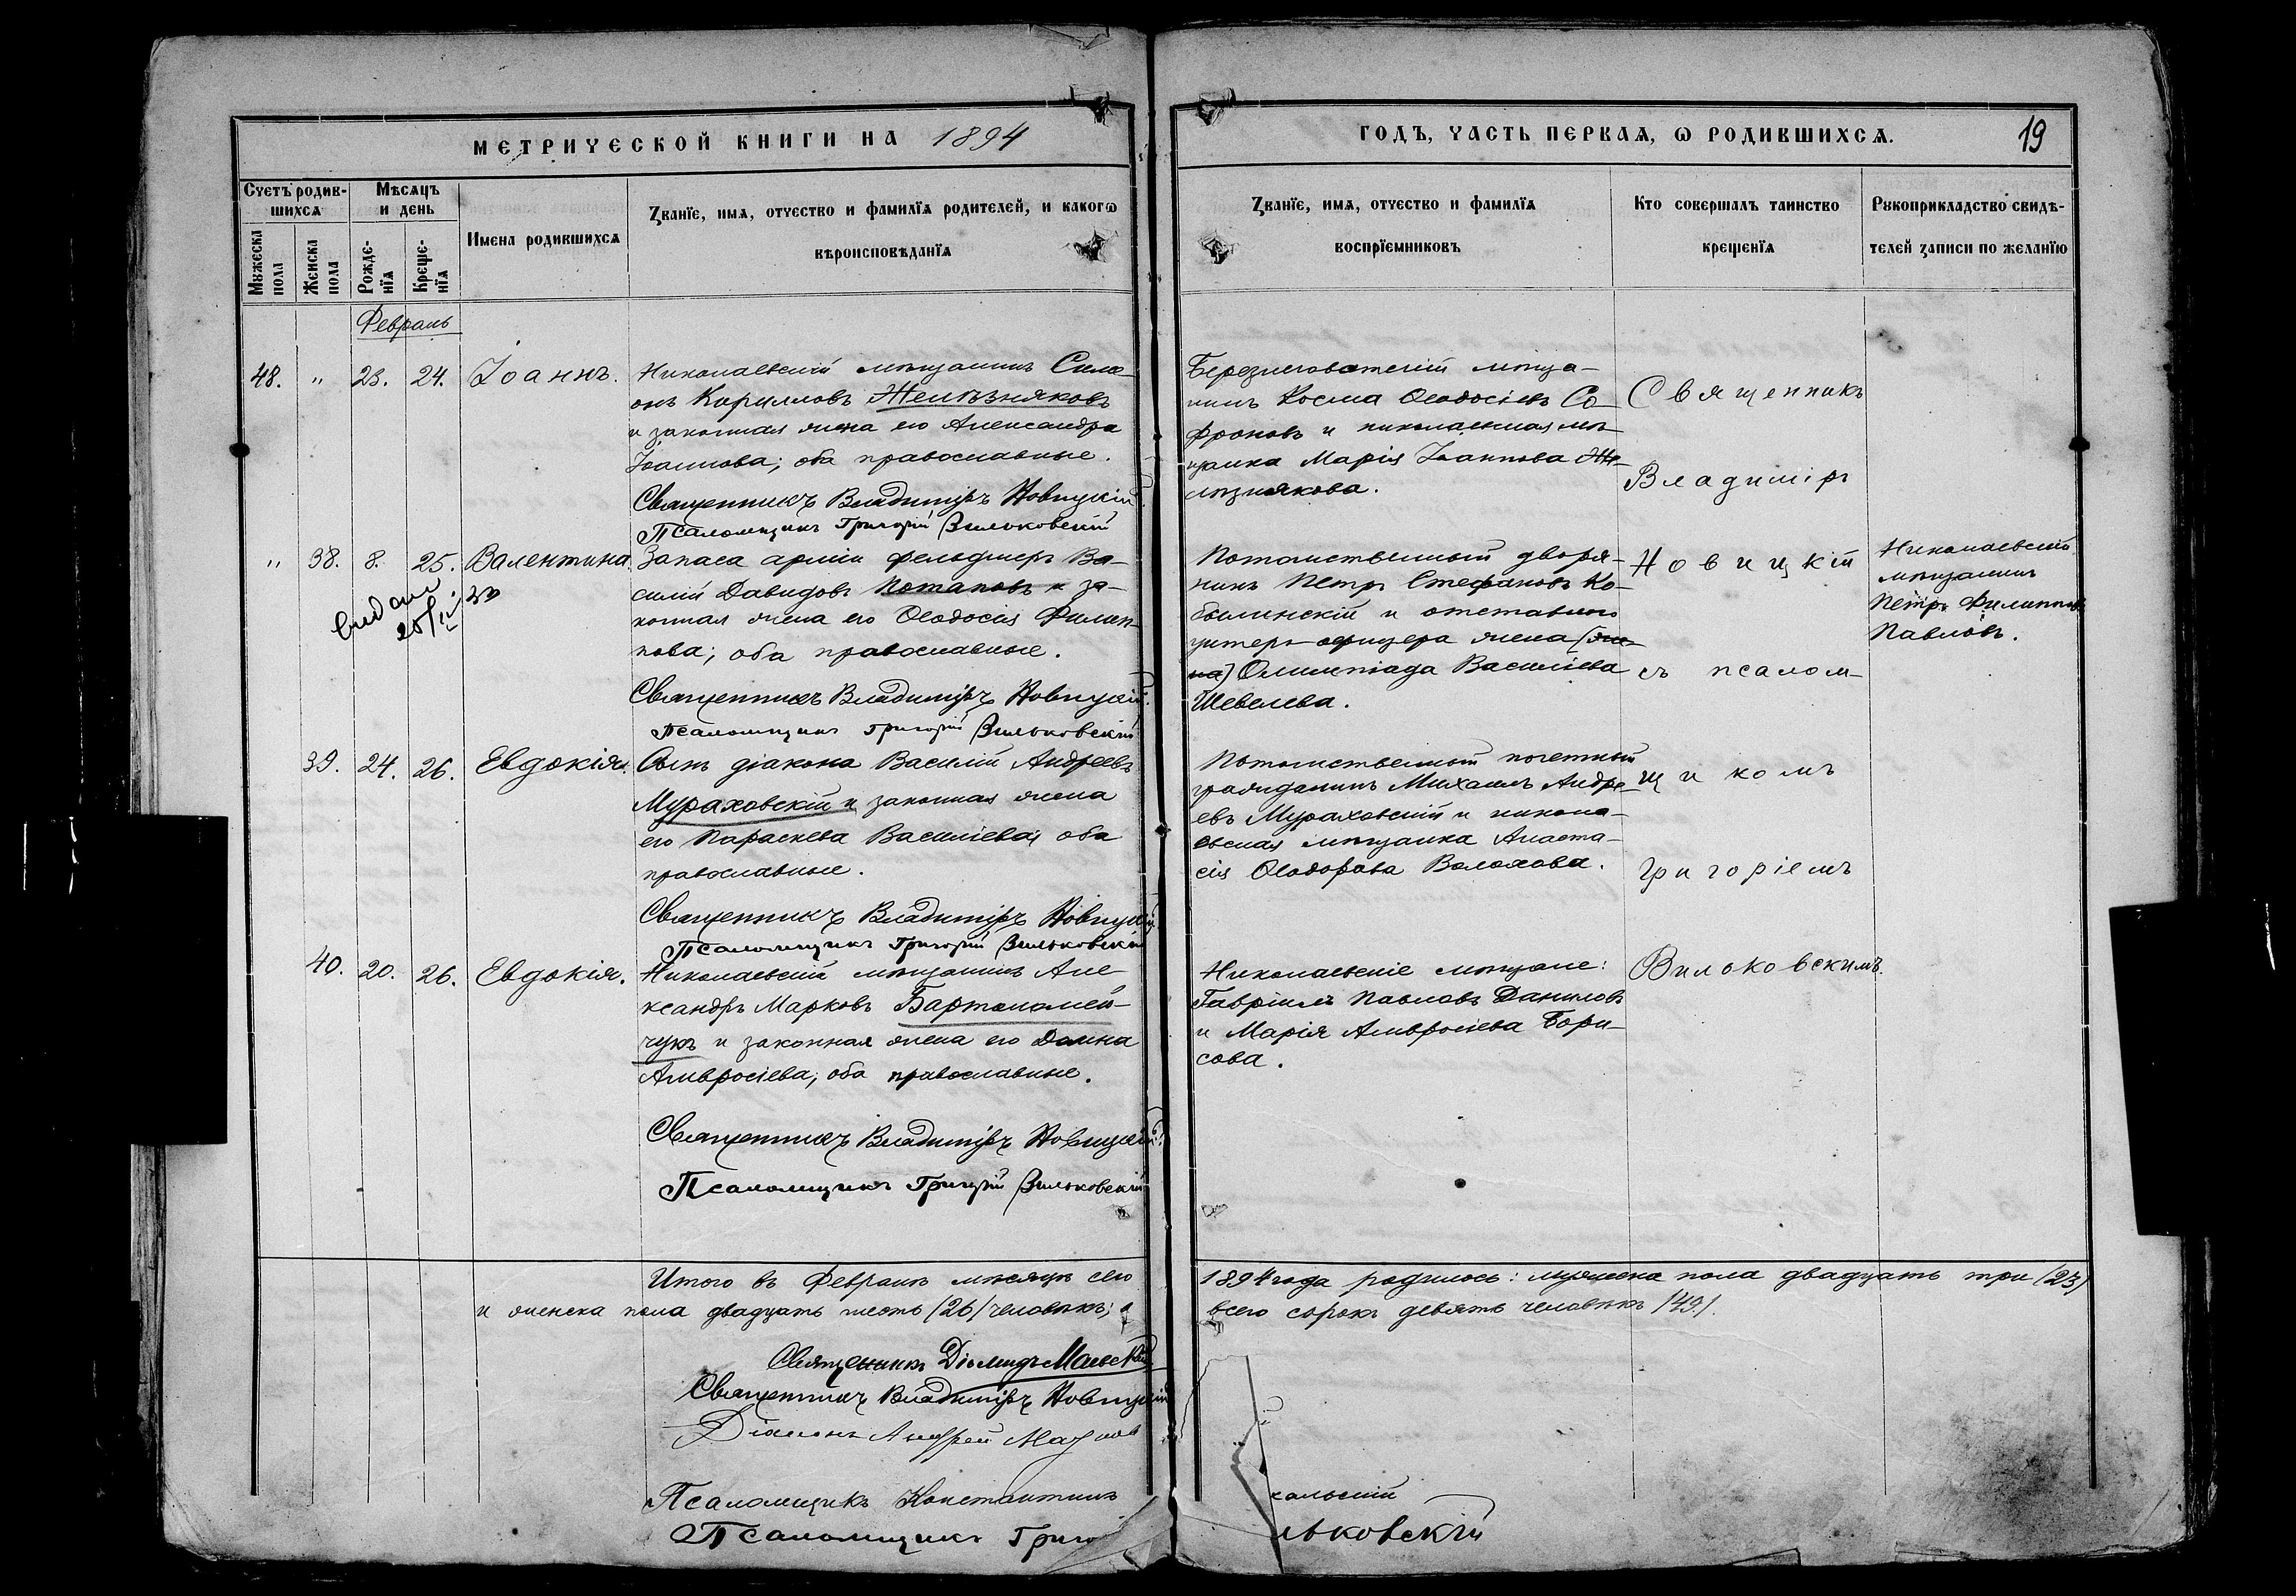 МЕТРИЧЕСКОЙ КНИГИ НА 1894
ГОДЪ, ЧАСТЬ ПЕРВАЯ, Ѡ РОДИВШИХСЯ.
19
Счетъ родив-
шихся
Мѣсяцъ
и день
Мужеска
пола
Женска
пола
Рожде-
нїя
Креще-
нїя
Имена родившихся
Званїе, имя, отчество и фамилїя родителей, и какогѡ
вѣроисповѣданїя
Званїе, имя, отчество и фамилїя
воспрїемниковъ
Кто совершалъ таинство
крещенїя
Рукоприкладство свидѣ-
телей записи по желанїю
Февраль
48. " 23. 24. Іоаннъ.
Николаевскій мѣщанинъ Симе-
онъ Кирилловъ Желѣзняковъ
и законная жена его Александра
Іоаннова; оба православные.
Священникъ Владиміръ Новицкій
Псаломщикъ Григорій Вильковскій
Березнеговатскій мѣща-
нинъ Косма Ѳеодосіевъ Со-
фроновъ и николаевская мѣ-
щанка Марія Іоаннова Же-
лѣзнякова.
" 38. 8. 25. Валентина.
Запаса арміи фельдшеръ Ва-
силій Давидовъ Потаповъ и за-
конная жена его Ѳеодосія Филип-
пова; оба православные.
Священникъ Владиміръ Новицкій
Псаломщикъ Григорій Вильковскій
Потомственный дворя-
нинъ Петръ Стефановъ Ко-
былинскій и отставного
унтеръ-офицера жена (же-
на) Олимпіада Василіева
Шевелева.
Николаевскій
мѣщанинъ
Петръ Филипповъ
Павловъ.
39. 24. 26. Евдокія.
Сынъ діакона Василій Андреевъ
Мураховскій и законная жена
его Параскева Василіева; оба
православные.
Священникъ Владиміръ Новицкій
Псаломщикъ Григорій Вильковскій
Потомственный почетный
гражданинъ Михаилъ Андре-
евъ Мураховскій и никола-
евская мѣщанка Анаста-
сія Ѳеодорова Волохова.
40. 20. 26. Евдокія.
Николаевскій мѣщанинъ Але-
ксандръ Марковъ Бартоломей-
чукъ и законная жена его Домна
Амвросіева; оба православные.
Священникъ Владиміръ Новицкій
Псаломщикъ Григорій Вильковскій
Николаевскіе мѣщане:
Гавріилъ Павловъ Даниловъ
и Марія Амвросіева Бори-
сова.
Священникъ
Владиміръ
Новицкій
съ псалом-
щикомъ
Григоріемъ
Вильковскимъ.
Итого въ Февралѣ мѣсяцѣ сего 1894 года родилось: мужеска пола двадцать три (23)
и женска пола двадцать шесть (26) человѣкъ; а всего сорокъ девять человѣкъ (49).
Священникъ Владиміръ Новицкій
Діаконъ Андрей
Псаломщикъ Константинъ
Псаломщикъ Григо льковскій